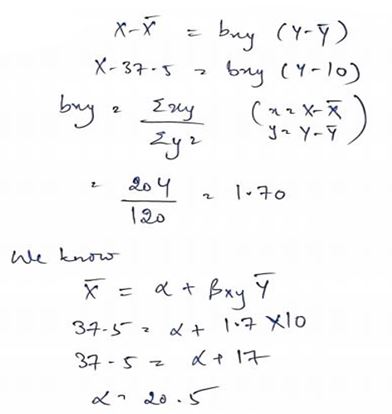 X-X̄ = bxy (Y-Ȳ)
X-37.5 = bxy (Y-10)
bxy = Σxy / Σy² (x = X-X̄
y = Y-Ȳ)
= 204 / 120 = 1.70
We know
X̄ = α + βxy Ȳ
37.5 = α + 1.7 X10
37.5 = α + 17
α = 20.5